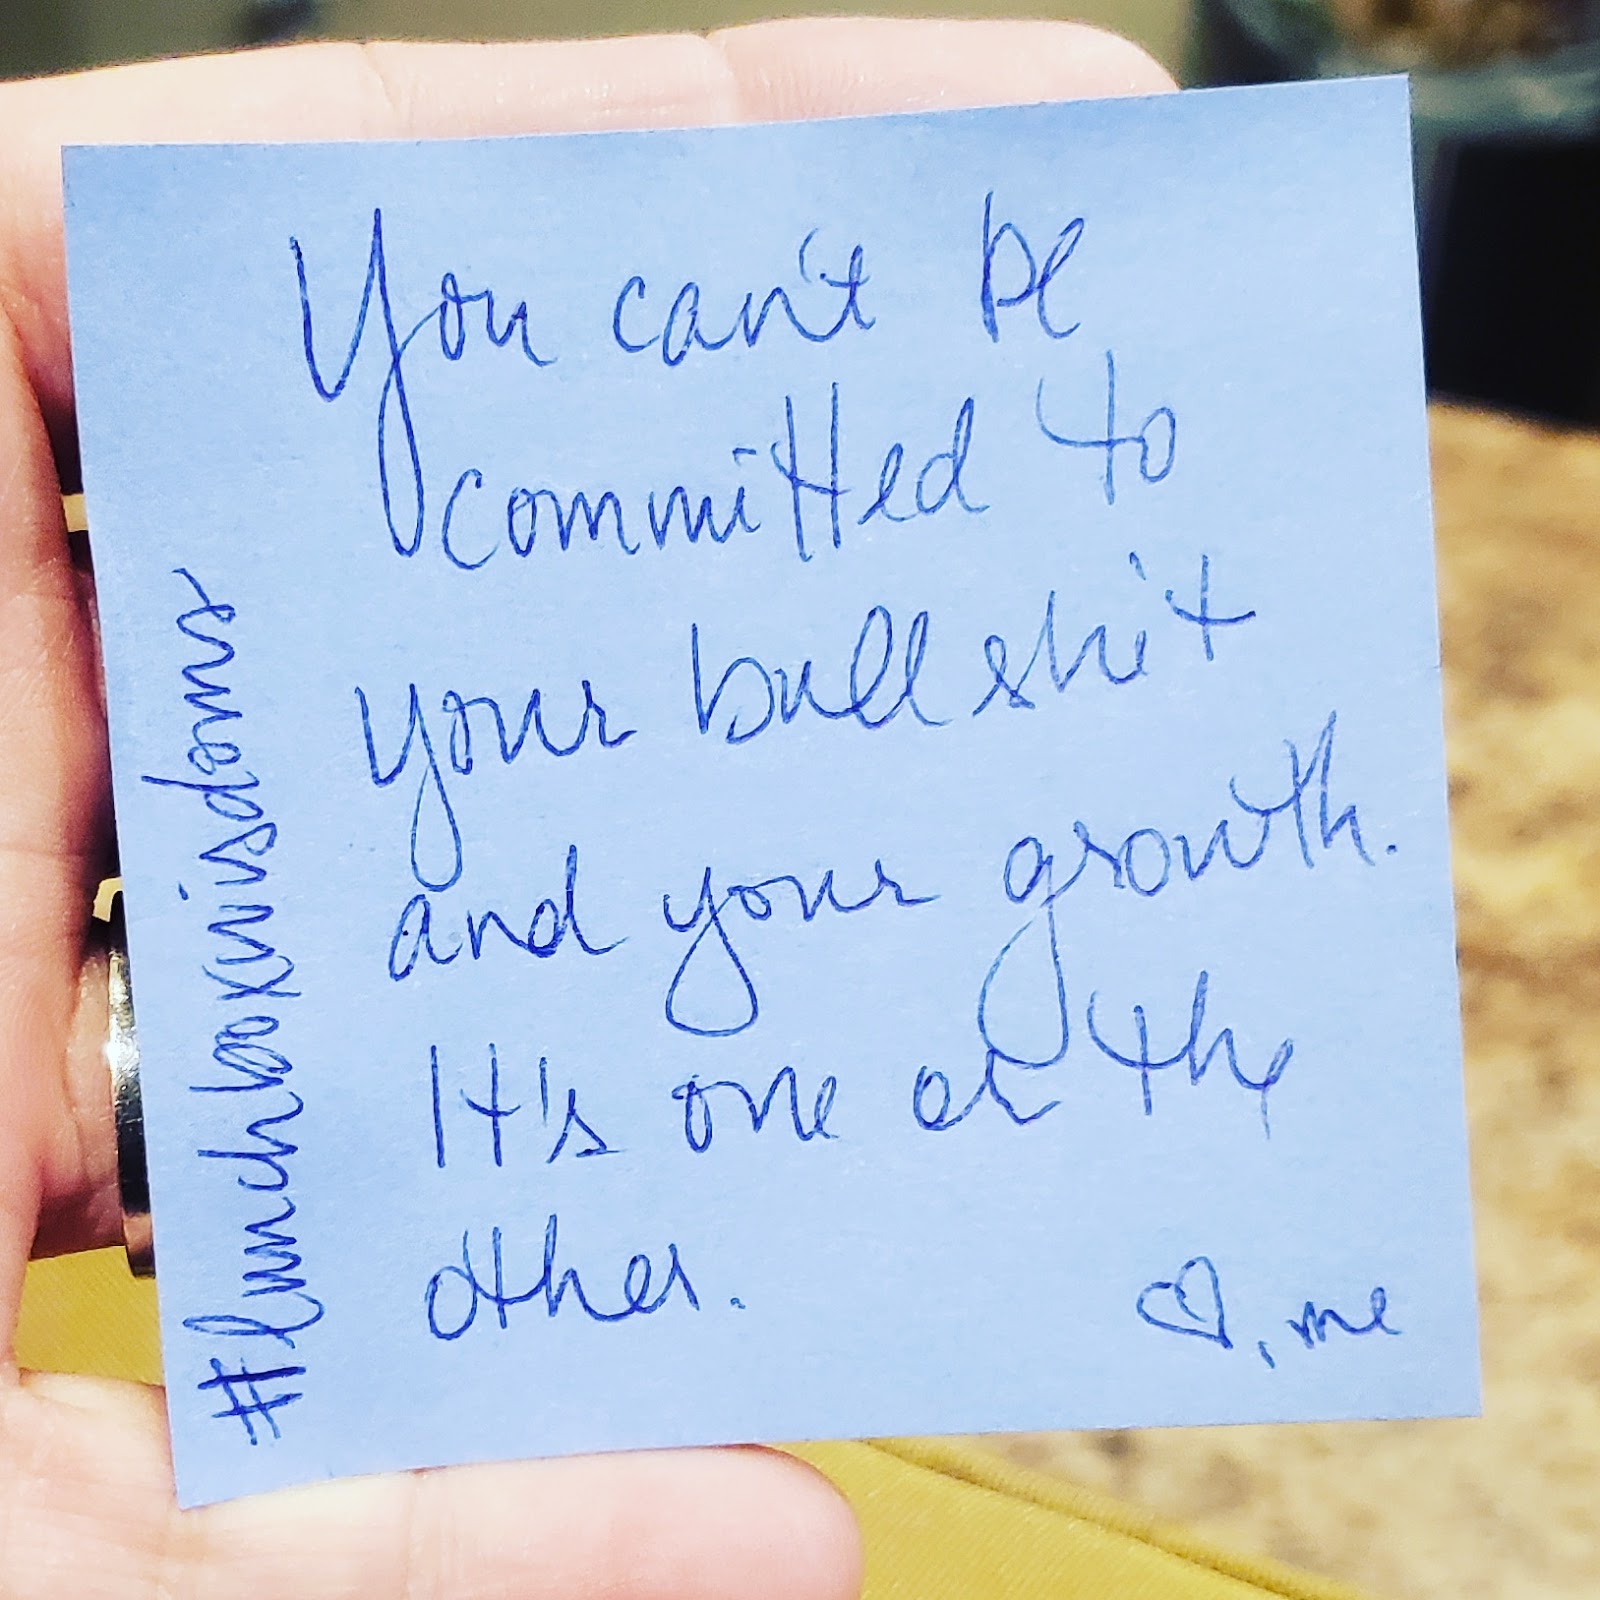 You can't be
committed to
your bullshit
and your growth.
It's one or the
other.
♡, me
#lunchboxwisdom